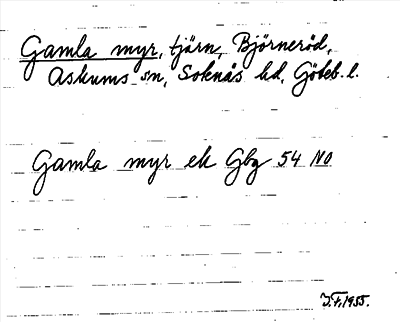 Gamla myr, tjärn, Björneröd,
Askums sn, Sotenäs hd, Göteb. l.
Gamla myr ek Gbg 54 NO
J.F. 1955.